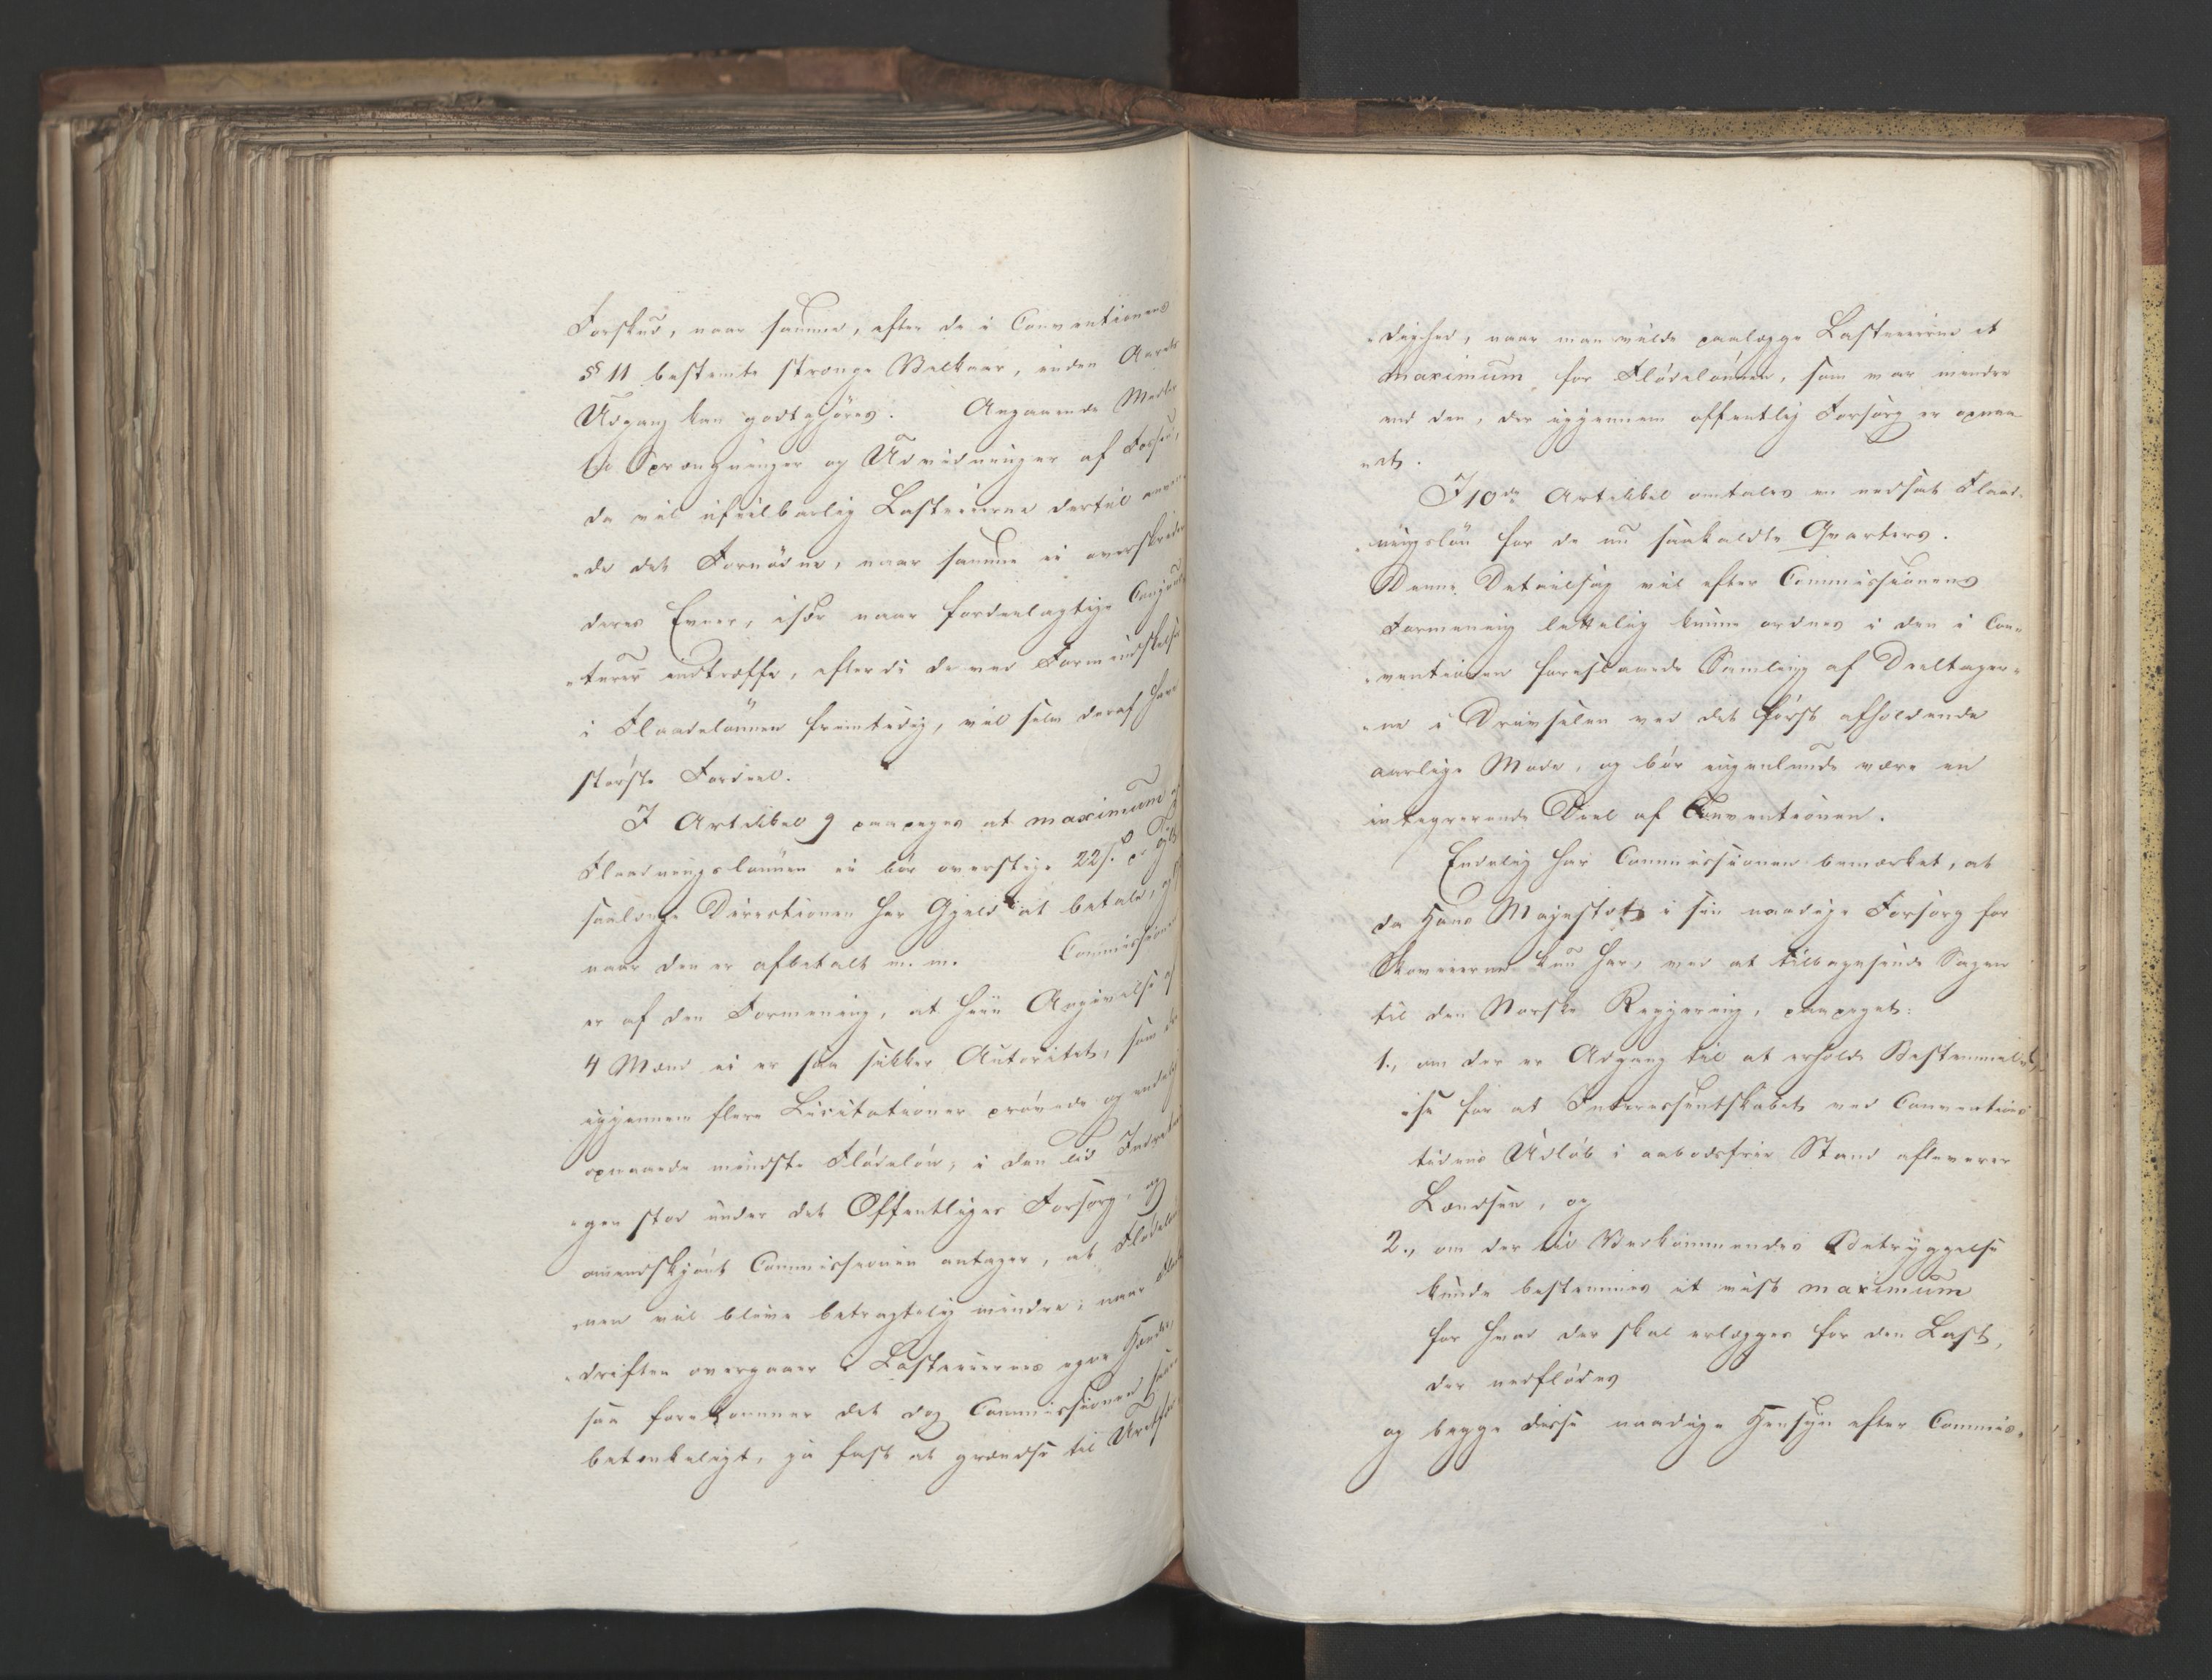 Forskud, naar samme, efter de i Conventionens
§ 11 bestemte strænge Vilkaar, inden Aarets
Udgang kan godtgjøres. Angaaende
Sprængninger og Udvidninger af Fosse,
da vil ufeilbarlig Lasteierne dertil anven
„de det Fornødne, naar samme ei overskrider
deres Evner, især naar fordeelagtige Conjunc
„turer indtræffe, efterdi de ved Formindskelse
i Flaadelønnen fremtidig, vil selv deraf have
største Fordeel.
I Artikkel 9 paapeges at maximum af
Flaadningslønnen ei bør overstige 22 s. pr Tylt
saalænge Directionen har Gjeld at betale, og
naar den er afbetalt m. m. Commissionen
er af den Formening, at hiin Angivelse af
4 Mænd ei er saa sikker Autoritet, som de
igjennem flere Licitationer prøvede og endelig
opnaaede mindste Flødeløn, i den Tid Indretnin
„gen stod under det Offentliges Forsorg, og
omendskjønt Commissionen antager, at Flødeløn
„nen vil blive betragtelig mindre, naar Fløde
„driften overgaaer i Lasteiernes egne Hænder,
saa forekommer det dog Commissionen saare
betænkeligt, ja fast at grændse til Uretfær
„dighed, naar man vilde paalægge Lasteierne et
maximum for Flødelønnen, som var mindre
end den, der igjennem offentlig Forsorg er opnaa
„et.
I 10de Artikkel omtales en nedsat Flaad„
„ningsløn for de nu saakaldte Qvarters.
Denne Detailsag vil efter Commissionens
Formening lettelig kunne ordnes i den i Con„
„ventionen foreslaaede Samling af Deeltager„
„ne i Drivselen ved det først afholdende
aarlige Møde, og bør ingenlunde være en
integrerende Deel af Conventionen.
Endelig har Commissionen bemærket, at
da Hans Majestæt i sin naadige Forsorg for
Skoveierne kun har, ved at tilbagesende Sagen
til den Norske Regjering, paapeget:
1., om der er Adgang til at erholde Bestemmel
„se for at Interessentskabet ved Conventions
tidens Udløb i aabodsfrie Stand afleverer
Lændsen, og
2., om der til Vedkommendes Betryggelse
kunde bestemmes et vist maximum
for hvad der skal erlægges for den Last,
der nedflødes
og begge disse naadige Hensyn efter Commis„